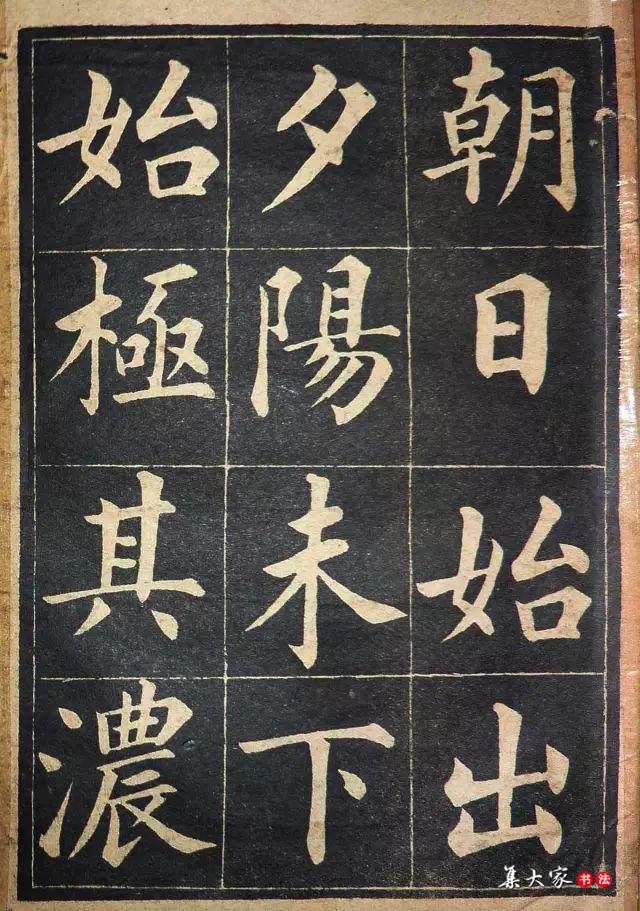 朝日始出
夕陽未下
始極其濃
集大家书法